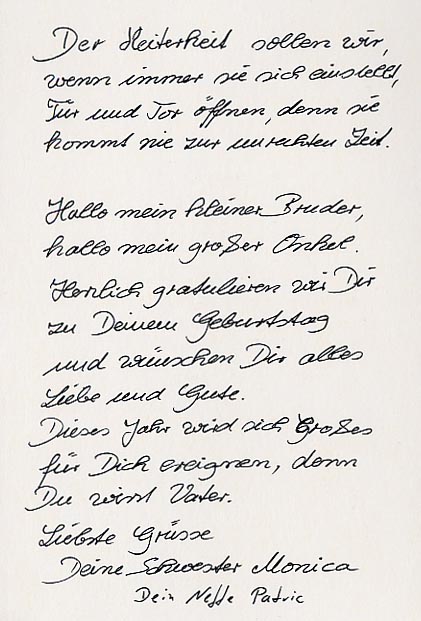 Der Heiterkeit sollen wir,
wenn immer sie sich einstellt,
Tür und Tor öffnen, denn sie
kommt nie zur unrechten Zeit.
Hallo mein kleiner Bruder,
hallo mein großer Onkel.
Herzlich gratulieren wir Dir
zu Deinem Geburtstag
und wünschen Dir alles
Liebe und Gute.
Dieses Jahr wird sich Großes
für Dich ereignen, denn
Du wirst Vater.
Liebste Grüsse
Deine Schwester Monica
Dein Neffe Patric